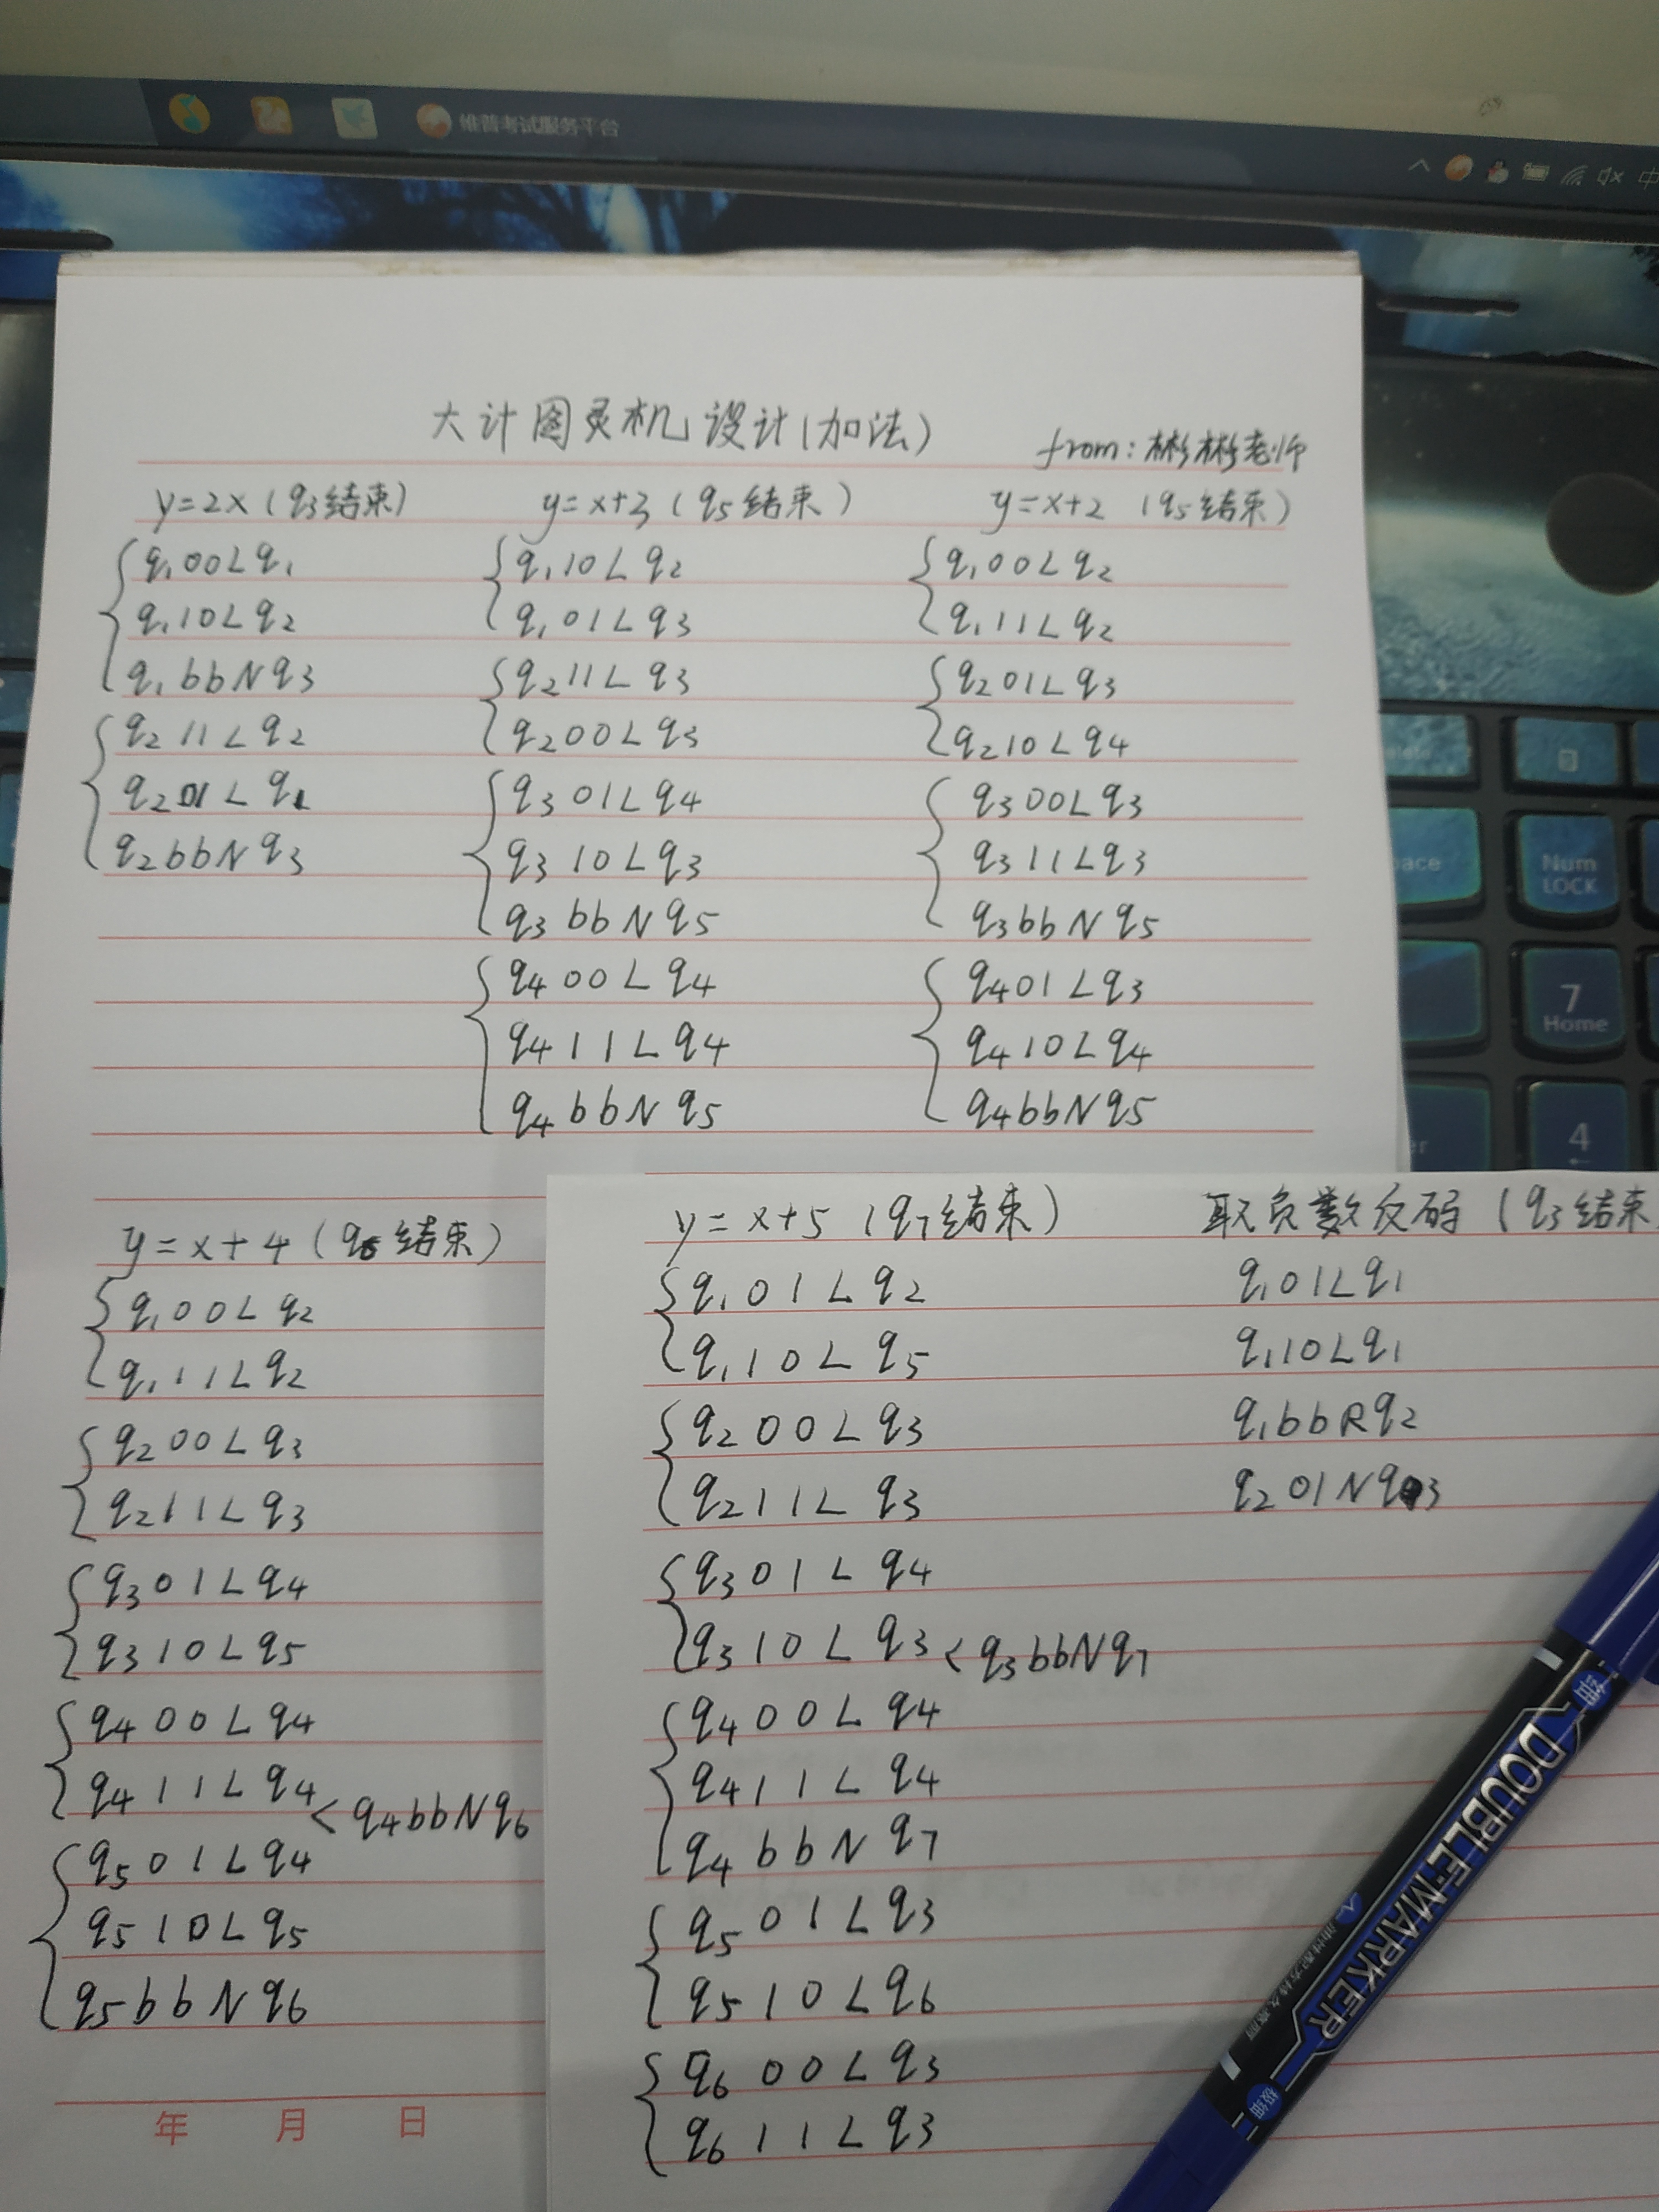 维普考试服务平台
大计图灵机设计(加法)
from: 彬彬老师
y=2x (q3结束)
q1 00 L q1
q1 10 L q2
q1 bb N q3
q2 11 L q2
q2 01 L q1
q2 bb N q3
y=x+3 (q5结束)
q1 10 L q2
q1 01 L q3
q2 11 L q3
q2 00 L q3
q3 01 L q4
q3 10 L q3
q3 bb N q5
q4 00 L q4
q4 11 L q4
q4 bb N q5
y=x+2 (q5结束)
q1 00 L q2
q1 11 L q2
q2 01 L q3
q2 10 L q4
q3 00 L q3
q3 11 L q3
q3 bb N q5
q4 01 L q3
q4 10 L q4
q4 bb N q5
y=x+4 (q6结束)
q1 00 L q2
q1 11 L q2
q2 00 L q3
q2 11 L q3
q3 01 L q4
q3 10 L q5
q4 00 L q4
q4 11 L q4 < q4 bb N q6
q5 01 L q4
q5 10 L q5
q5 bb N q6
年 月 日
y=x+5 (q7结束)
q1 01 L q2
q1 10 L q5
q2 00 L q3
q2 11 L q3
q3 01 L q4
q3 10 L q3 < q3 bb N q7
q4 00 L q4
q4 11 L q4
q4 bb N q7
q5 01 L q3
q5 10 L q6
q6 00 L q3
q6 11 L q3
取负数反码 (q3结束
q1 01 L q1
q1 10 L q1
q1 bb R q2
q2 01 N q3
Num
LOCK
7
Home
4
DOUBLE-MARKER